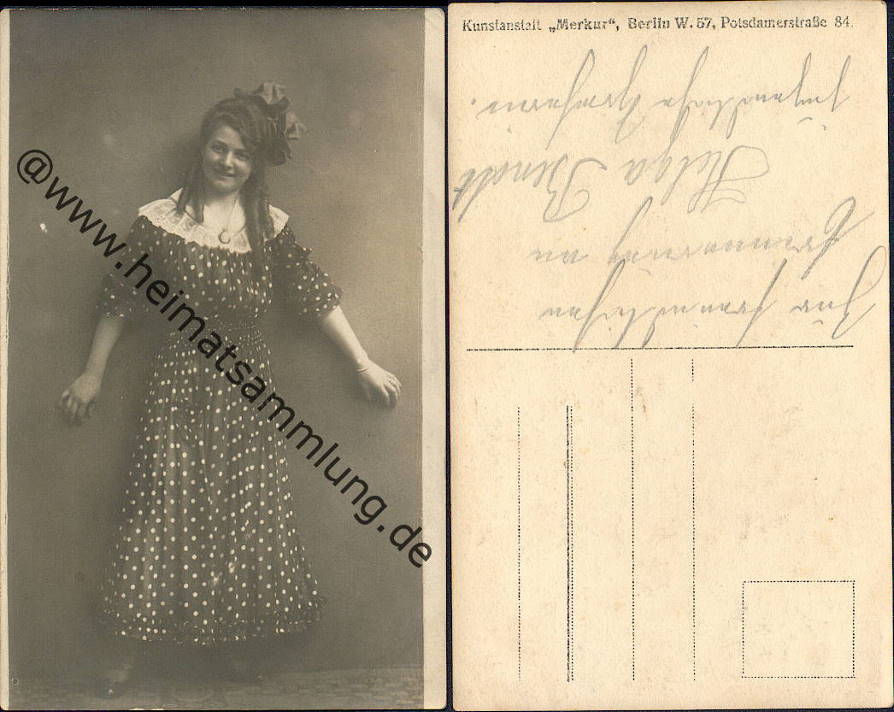 @www.heimatsammlung.de
Kunstanstalt „Merkur“, Berlin W. 57, Potsdamerstraße 84.
Zur freundlichen
Erinnerung an
Helga Bendt
jugendliche